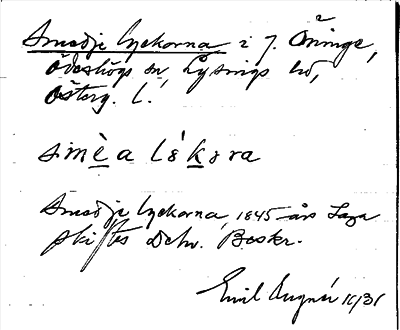 Smedjelyckorna i J. Åninge,
Ödeshögs sn, Lysings hd,
Österg. L.
smèa lékkra
Smedjelyckorna, 1845 års Laga
skiftes Deln. Beskr.
Emil 10/31